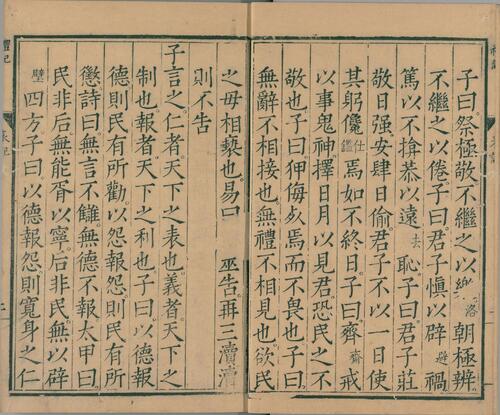 子曰祭極敬不繼之以樂洛朝極辨
不繼之以倦子曰君子慎以辟避禍
篤以不揜恭以遠去恥子曰君子莊
敬日强安肆日偷君子不以一日使
其躬儳仕鑑焉如不終日子曰齊齋戒
以事鬼神擇日月以見君恐民之不
敬也子曰狎侮死焉而不畏也子曰
無辭不相接也無禮不相見也欲民
之毋相褻也易曰筮告再三瀆瀆
則不告
子言之仁者天下之表也義者天下之
制也報者天下之利也子曰以德報
德則民有所勸以怨報怨則民有所
懲詩曰無言不讎無德不報太甲曰
民非后無能胥以寧后非民無以辟
璧四方子曰以德報怨則寬身之仁
禮記